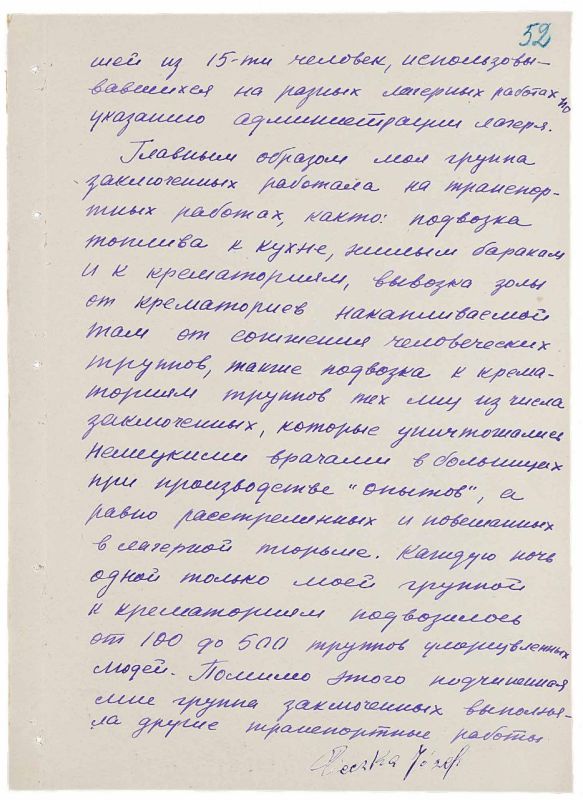 52
шей из 15-ти человек, использовы-
вавшихся на разных лагерных работах по
указанию администрации лагеря.
Главным образом моя группа
заключенных работала на транспор-
тных работах, как то: подвозка
топлива к кухне, жилым баракам
и к крематориям, вывозка золы
от крематориев накапливаемой
там от сожжения человеческих
труппов, также подвозка к крема-
ториям труппов тех лиц из числа
заключенных, которые уничтожались
немецкими врачами в больницах
при производстве "опытов", а
равно расстрелянных и повешанных
в лагерной тюрьме. Каждую ночь
одной только моей группой
к крематориям подвозилось
от 100 до 500 труппов умерщвленных
людей. Помимо этого подчиненная
мне группа заключенных выполня-
ла другие транспортные работы
Józef